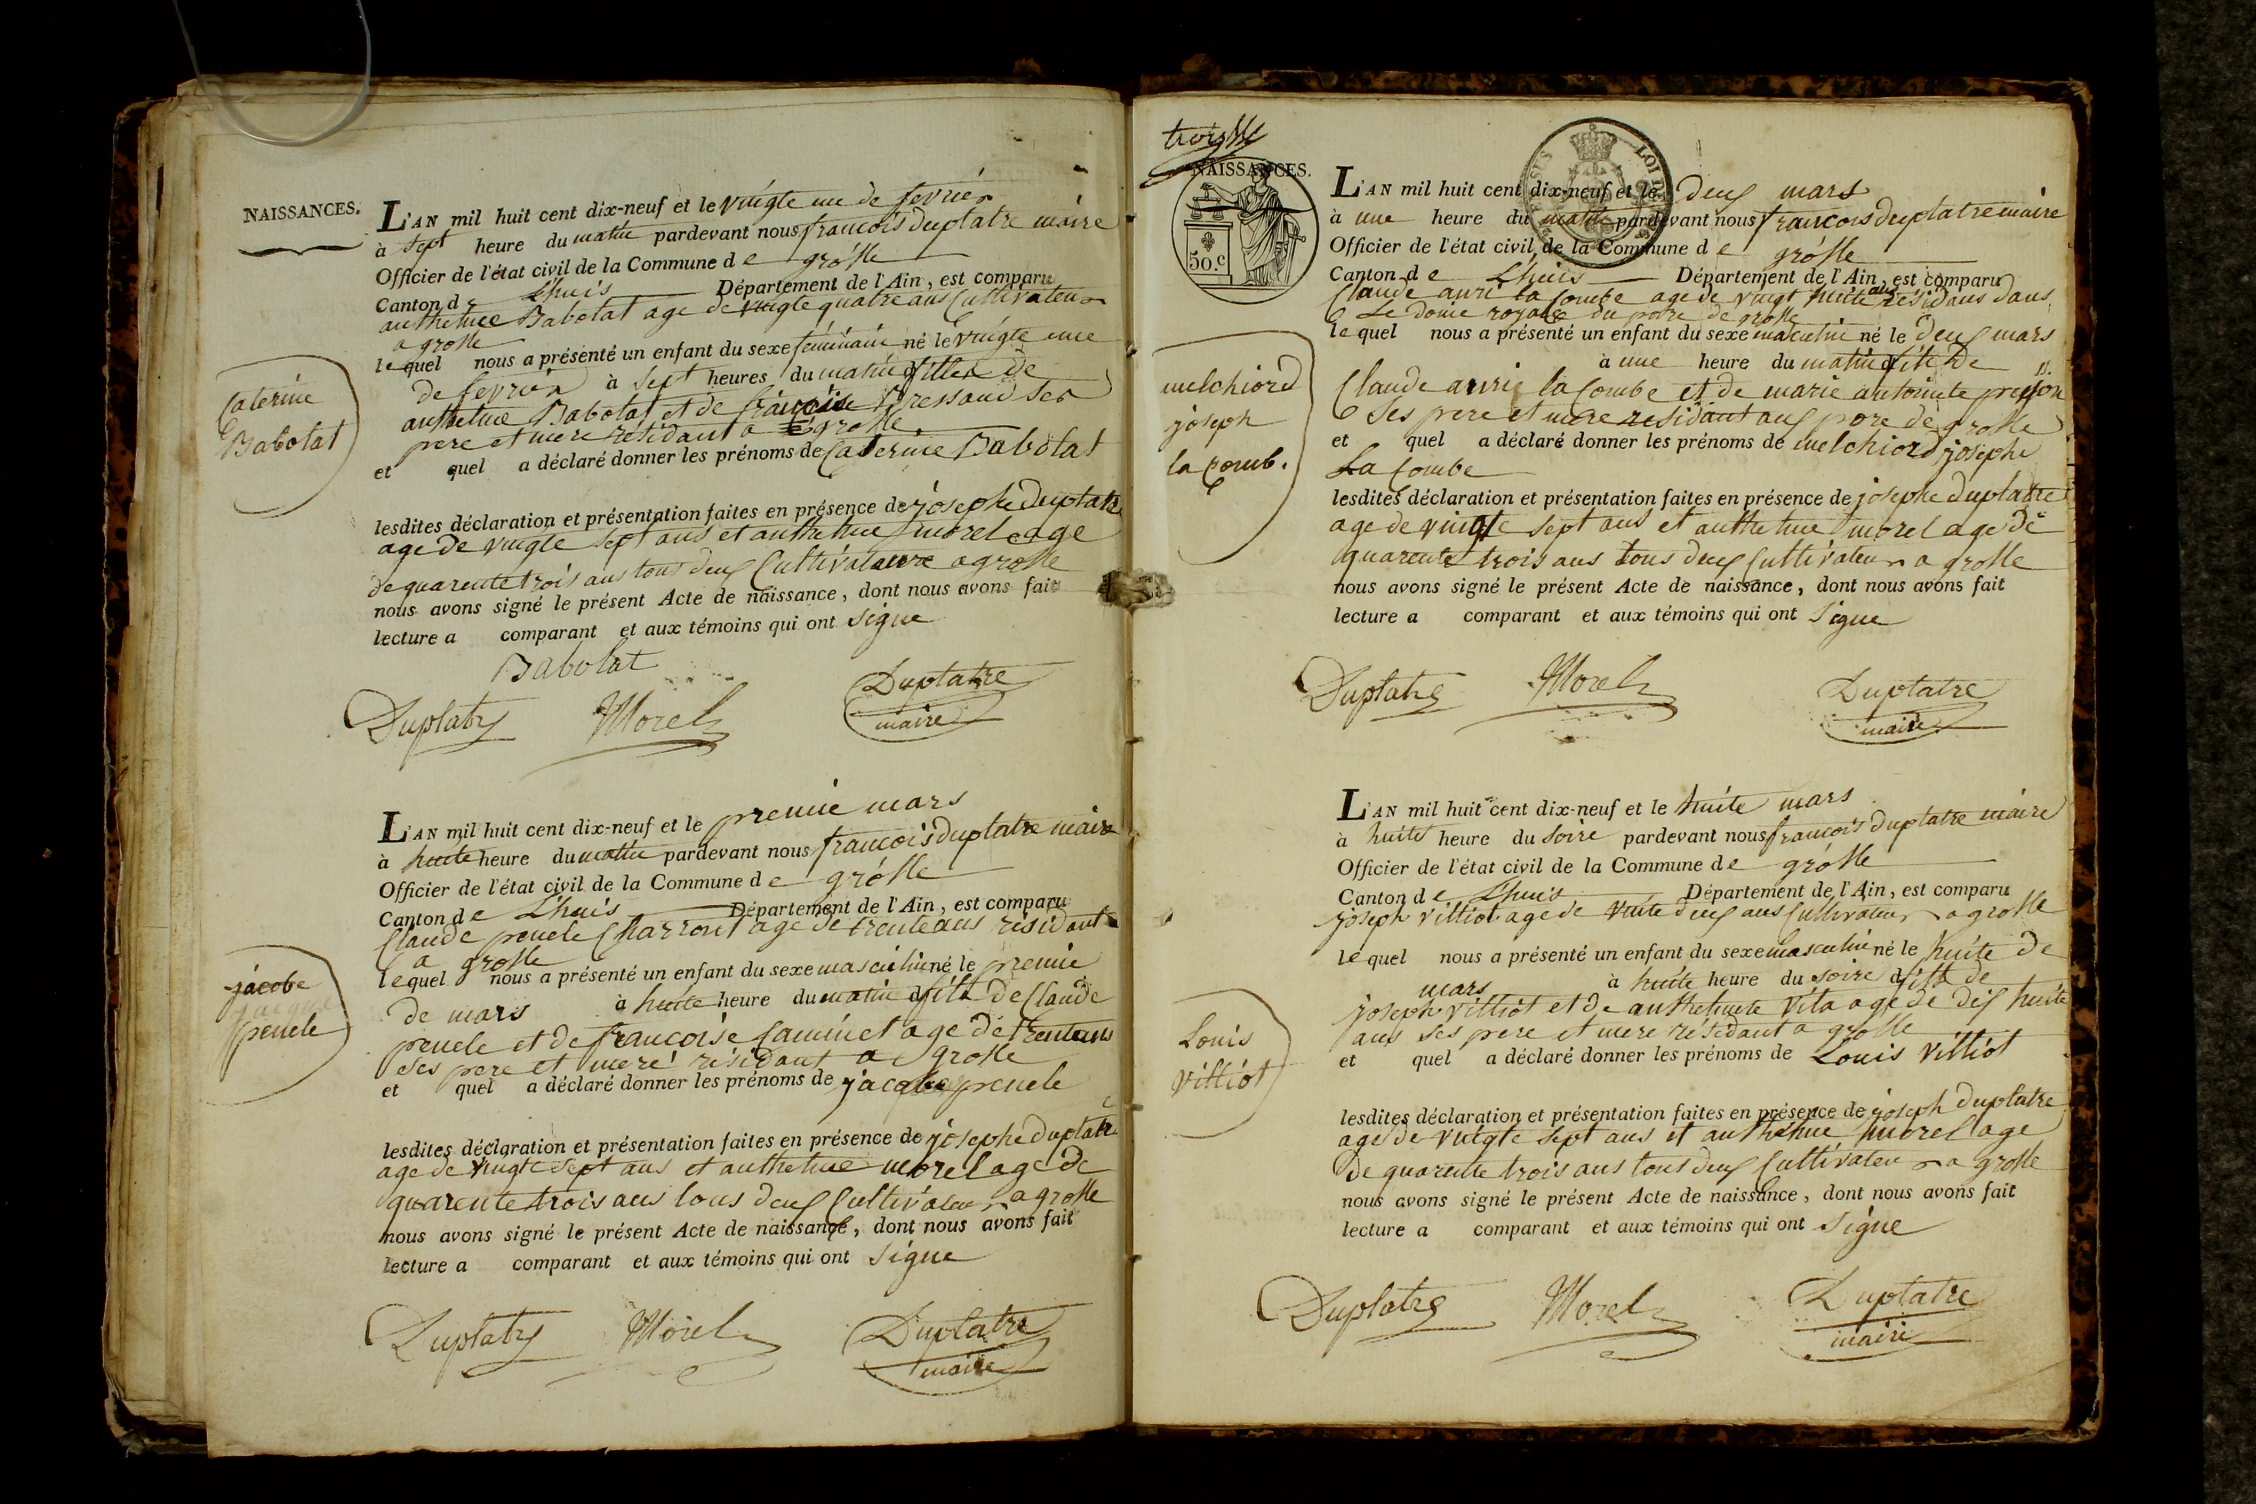 NAISSANCES.
L'AN mil huit cent dix-neuf et le vingte une de fevrier
à sept heure du matin pardevant nous francois duplatre maire
Officier de l'état civil de la Commune de grosle
Canton de Lhuis Département de l'Ain, est comparu
anthelme Babolat age de vingte quatre ans Cultivateur
a grosle
lequel nous a présenté un enfant du sexe feminain né le vingte une
de fevrier à sept heures du matin fillea de
anthelme Babolat et de françoise Bressand ses
pere et mere résidant a grosle
et quel a déclaré donner les prénoms de Caterine Babolat
lesdites déclaration et présentation faites en présence de josephe duplatre
age de vingte sept ans et anthelme morel age
de quarente trois ans tous deux Cultivateure a grosle
nous avons signé le présent Acte de naissance, dont nous avons fait
lecture a comparant et aux témoins qui ont signe
Babolat
Duplatre Morel Duplatre
maire
Caterine
Babolat
L'AN mil huit cent dix-neuf et le premie mars
à huite heure du matin pardevant nous francois duplatre maire
Officier de l'état civil de la Commune de grosle
Canton de Lhuis Département de l'Ain, est comparu
Claude penele Charront age de trente ans résidant
a grosle
lequel nous a présenté un enfant du sexe masculin né le premie
de mars à huite heure du matin fils de Claude
penele et de francoise Caminet age de trente ans
ses pere et mere résidant a grosle
et quel a déclaré donner les prénoms de jacobe penele
lesdites déclaration et présentation faites en présence de josephe duplatre
age de vingte sept ans et anthelme morel age de
quarente trois ans tous deux Cultivateur a grosle
nous avons signé le présent Acte de naissance, dont nous avons fait
lecture a comparant et aux témoins qui ont signe
Duplatre Morel Duplatre
maire
jacobe
penele
troisle
NAISSANCES.
50.c
LOI DE
L'AN mil huit cent dix-neuf et le deux mars
à une heure du matin pardevant nous francois duplatre maire
Officier de l'état civil de la Commune de grosle
Canton de Lhuis Département de l'Ain, est comparu
Claude anri la Combe age de vingt huite ans résidans dans
le doine royalle du pore de grosle
lequel nous a présenté un enfant du sexe masculin né le deux mars
à une heure du matin fils de
Claude anrie la Combe et de marie antoinete presson
ses pere et mere residant aux pore de grosle
et quel a déclaré donner les prénoms de melchiord josephe
La Combe
lesdites déclaration et présentation faites en présence de josephe duplatre
age de vingte sept ans et anthelme morel age de
quarente trois ans tous deux Cultivateur a grosle
nous avons signé le présent Acte de naissance, dont nous avons fait
lecture a comparant et aux témoins qui ont signe
Duplatre Morel Duplatre
maire
melchiord
joseph
la Comb.
L'AN mil huit cent dix-neuf et le huite mars
à huite heure du soire pardevant nous francois duplatre maire
Officier de l'état civil de la Commune de grosle
Canton de Lhuis Département de l'Ain, est comparu
joseph villiot age de vinte deux ans Cultivateur a grosle
lequel nous a présenté un enfant du sexe masculin né le huite de
mars à huite heure du soire fils de
joseph villiot et de anthelmete vita age de dix huite
ans ses pere et mere résidant a grosle
et quel a déclaré donner les prénoms de Louis villiot
lesdites déclaration et présentation faites en présence de joseph duplatre
age de vingte sept ans et anthelme morel age
de quarente trois ans tous deux Cultivateur a grosle
nous avons signé le présent Acte de naissance, dont nous avons fait
lecture a comparant et aux témoins qui ont signe
Duplatre Morel Duplatre
maire
Louis
villiot